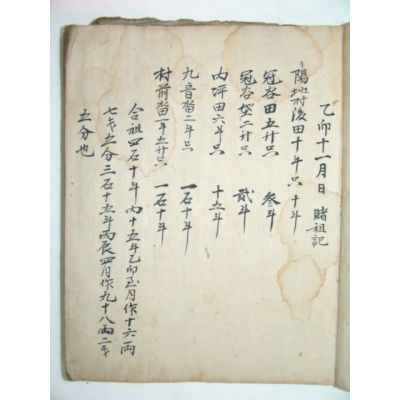 乙卯十一月日 賭租記
陽地村後田十斗只 十斗
冠谷田五升只 叁斗
冠谷垈二升只 貳斗
內坪田六斗只 十五斗
九音畓二斗只 一石十斗
村前畓一斗五升只 一石十斗
合租四石十斗內十五斗乙卯至月作十六兩
七戔五分三石十五斗丙辰四月作九十八兩二戔
五分也